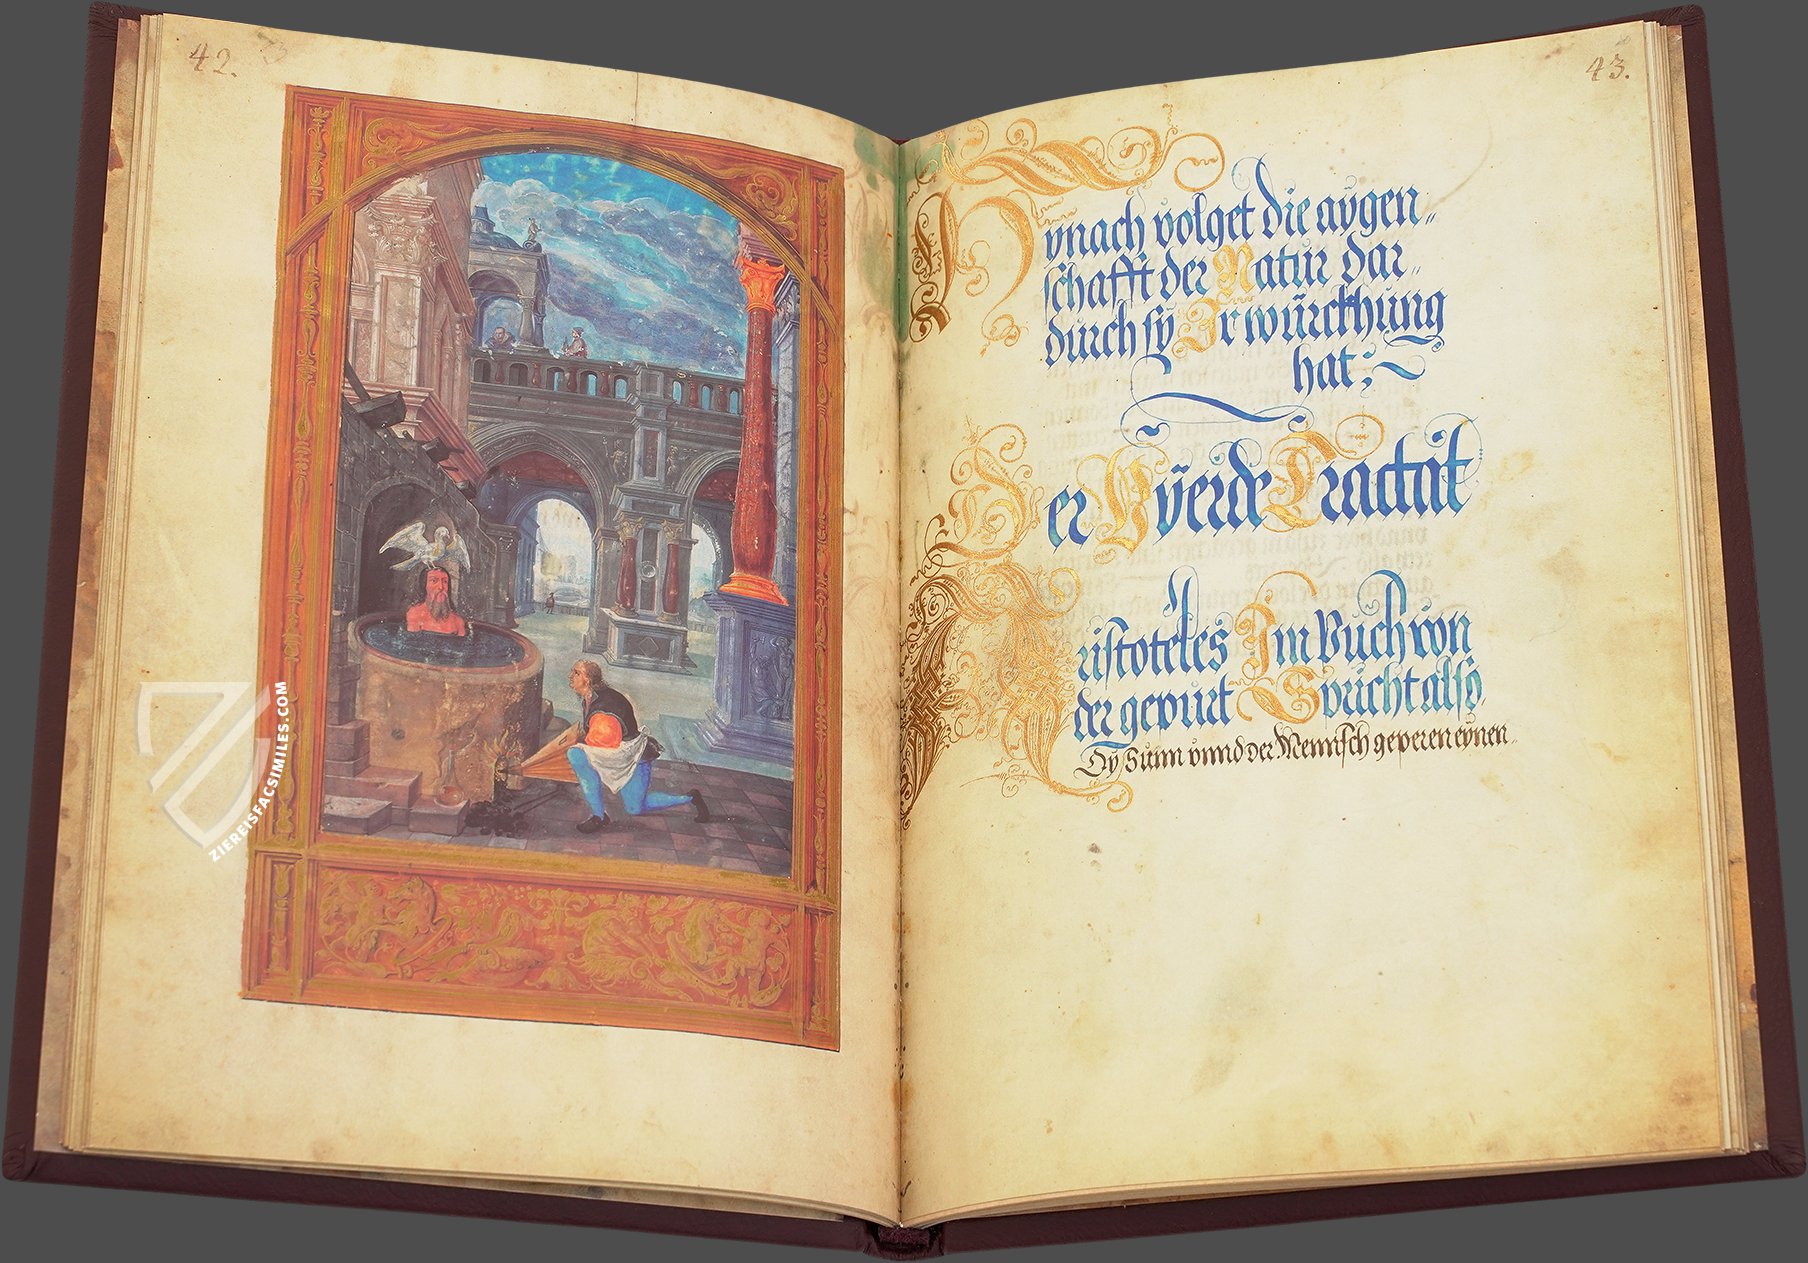 42.
ZIEREISFACSIMILES.COM
43.
Hynach volget die aygen„
schafft der Natur dar„
durch sy Ir würckhung
hat:~
Der Vyerde Tractat
Aristoteles Im Buch von
der gepurt Spricht also,
Dy Sunn unnd der Mennsch geperen eynen„